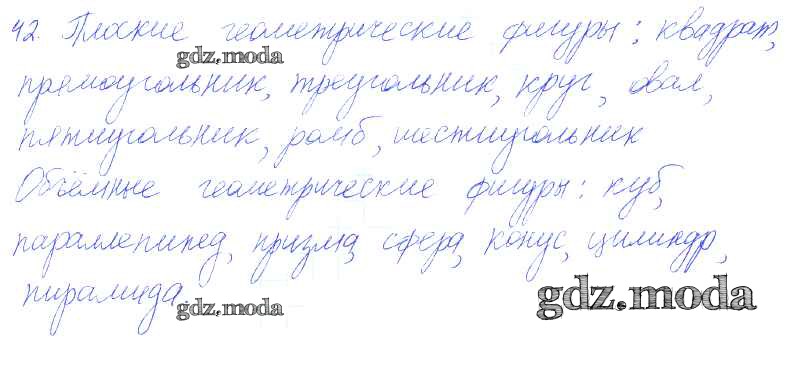 42. Плоские геометрические фигуры: квадрат,
gdz.moda
прямоугольник, треугольник, круг, овал,
пятиугольник, ромб, шестиугольник
Объёмные геометрические фигуры: куб,
параллепипед, призма, сфера, конус, цилиндр,
пирамида.
gdz.moda
gdz.moda